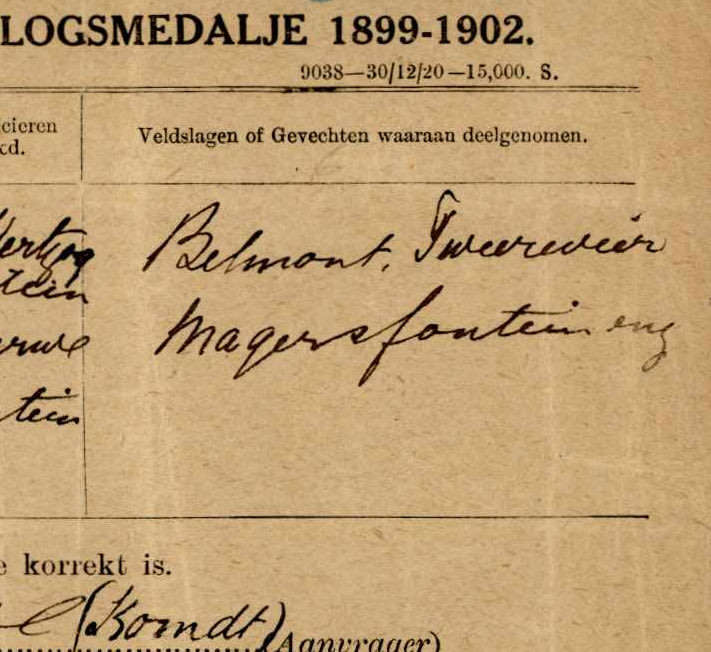 LOGSMEDALJE 1899-1902.
9038—30/12/20—15,000. S.
cieren
kd.
Veldslagen of Gevechten waaraan deelgenomen.
Hertzog
tein
Belmont, Tweerevier
Magersfontein eng
tein
e korrekt is.
(Komdt)
(Aanvrager)